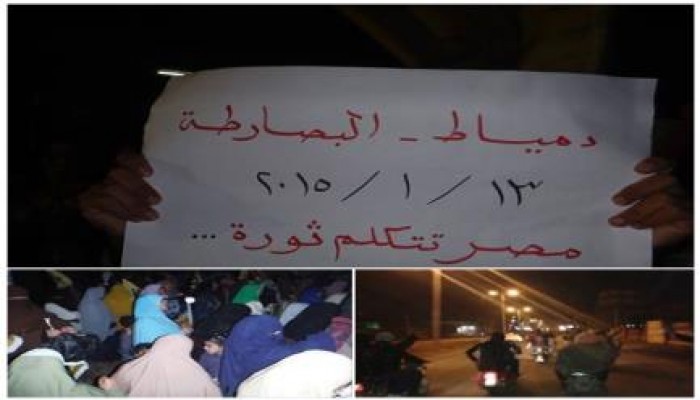 دمياط - البصارطة
١٣ / ١ / ٢٠١٥
مصر تتكلم ثورة ...